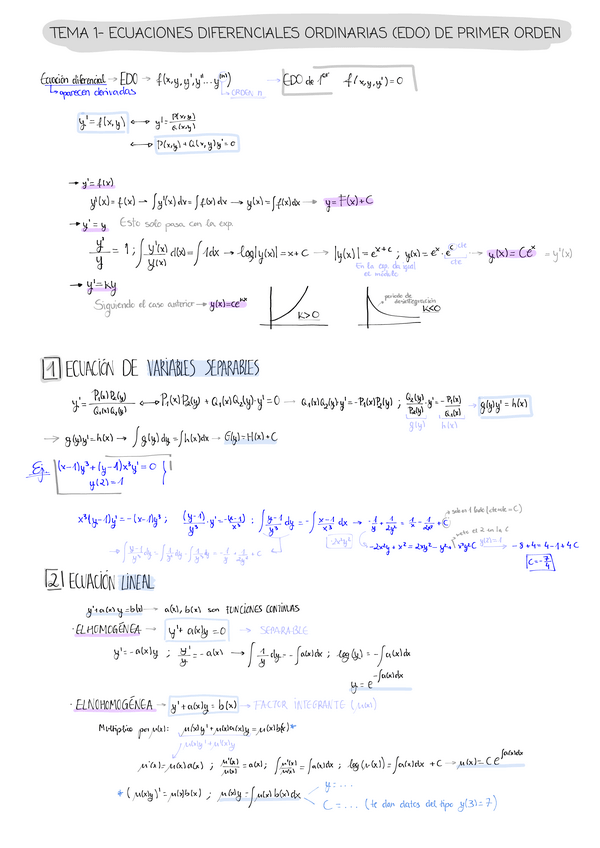 TEMA 1- ECUACIONES DIFERENCIALES ORDINARIAS (EDO) DE PRIMER ORDEN
Ecuación diferencial → EDO → f(x,y,y',y''...y⁽ⁿ⁾) → EDO de 1er f(x,y,y')=0
↳ aparecen derivadas ↳ ORDEN n
y'=f(x,y) ↔ y'=P(x,y)/Q(x,y)
↔ P(x,y)+Q(x,y)y'=0
→ y'=f(x)
y'(x)=f(x) → ∫y'(x)dx=∫f(x)dx → y(x)=∫f(x)dx → y=F(x)+C
→ y'=y Esto solo pasa con la exp.
y'/y = 1 ; ∫y'(x)/y(x) d(x)=∫1dx → log|y(x)|=x+C → |y(x)|=e^(x+c) ; y(x)=e^x·e^c → y(x)=Ce^x = y'(x)
En la exp. da igual el módulo
cte
cte
→ y'=Ky
Siguiendo el caso anterior → y(x)=ce^(kx)
K>0
periodo de desintegración
K<0
1 ECUACIÓN DE VARIABLES SEPARABLES
y'=P₁(x)P₂(y)/Q₁(x)Q₂(y) ↔ P₁(x)P₂(y)+Q₁(x)Q₂(y)·y'=0 → Q₁(x)Q₂(y)·y'=-P₁(x)P₂(y) ; Q₂(y)/P₂(y)·y'=-P₁(x)/Q₁(x) → g(y)y'=h(x)
g(y) h(x)
→ g(y)y'=h(x) → ∫g(y)dy=∫h(x)dx → G(y)=H(x)+C
Ej. (x-1)y³+(y-1)x³y'=0
y(2)=1
x³(y-1)y'=-(x-1)y³ ; (y-1)/y³·y'=-(x-1)/x³ ; ∫(y-1)/y³ dy=-∫(x-1)/x³ dx → -1/y+1/2y²=1/x-1/2x²+C
→ solo en 1 lado (cte-cte=C)
→ ∫(y-1)/y³ dy=∫1/y² dy-∫1/y³ dy=-1/y+1/2y²+C
·2x²y²
-2x²y+x²=2xy²-y²+x²y²C
y(2)=1 → -8+4=4-1+4C
C=-7/4
2 ECUACIÓN LINEAL
y'+a(x)y=b(x) → a(x), b(x) son FUNCIONES CONTINUAS
· EL HOMOGÉNEA → y'+a(x)y=0 → SEPARABLE
y'=-a(x)y ; y'/y=-a(x) → ∫1/y dy=-∫a(x)dx ; log(y)=-∫a(x)dx
y=e^(-∫a(x)dx)
· EL NO HOMOGÉNEA → y'+a(x)y=b(x) → FACTOR INTEGRANTE (μ(x))
Multiplico por μ(x): μ(x)y'+μ(x)a(x)y=μ(x)b(x)*
μ(x)y'+μ'(x)y
μ'(x)=μ(x)a(x) ; μ'(x)/μ(x)=a(x) ; ∫μ'(x)/μ(x)=∫a(x)dx ; log(μ(x))=∫a(x)dx+C → μ(x)=Ce^(∫a(x)dx)
* (μ(x)y)'=μ(x)b(x) ; μ(x)y=∫μ(x)b(x)dx
y=...
C=... (te dan datos del tipo y(3)=7)